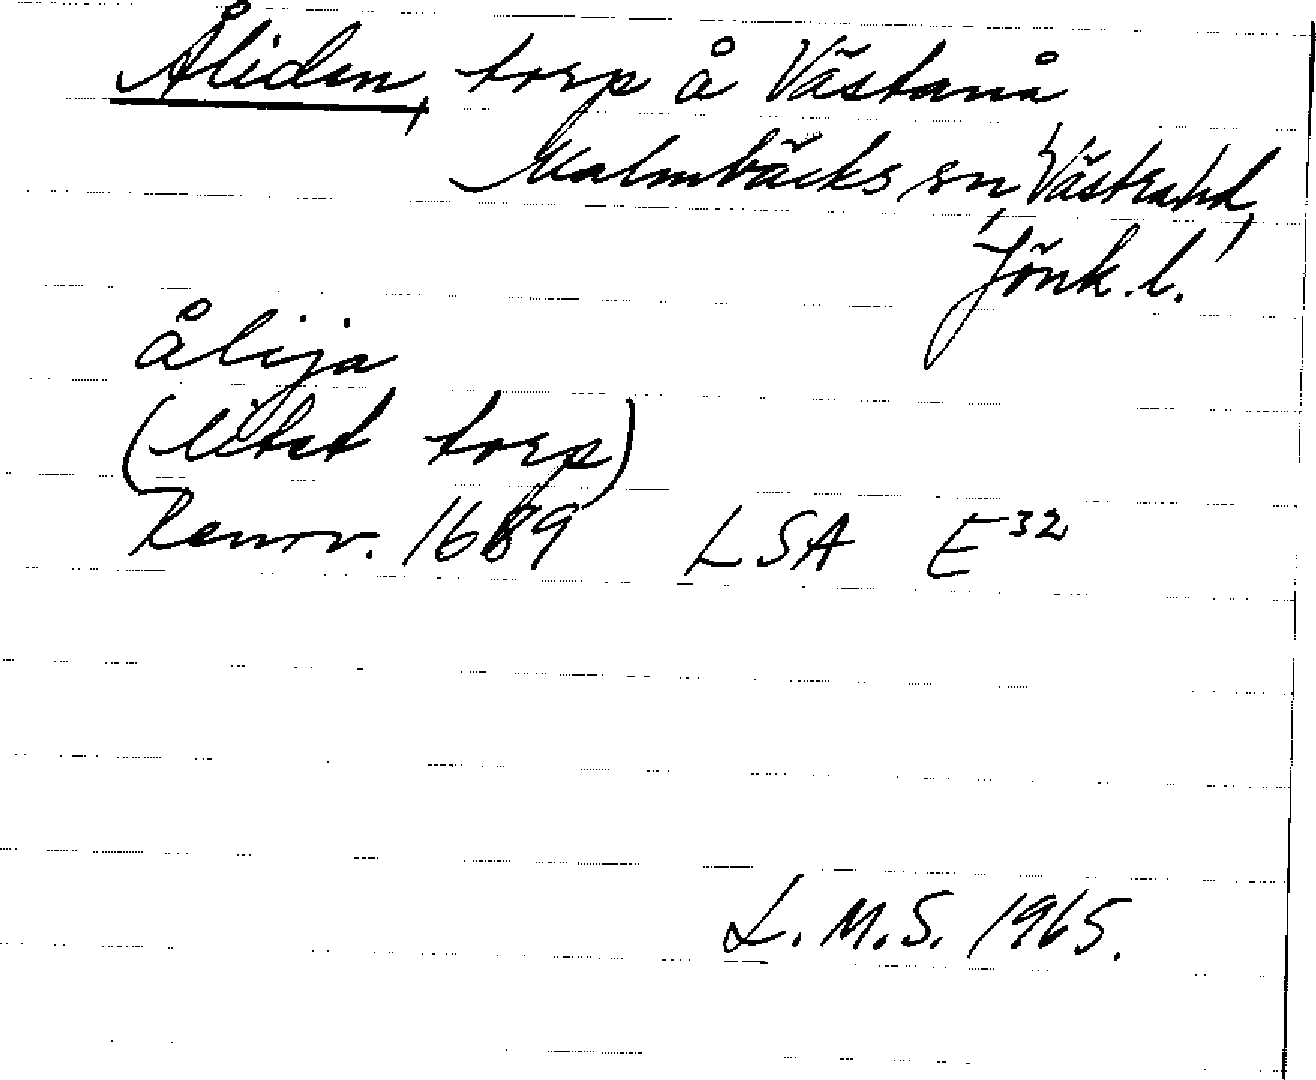 Åliden, torp å Västanå
Malmbäcks sn, Västra hd,
Jönk. l.
Ålija
(litet torp)
Renov. 1689 LSA E32
L.M.S. 1965.